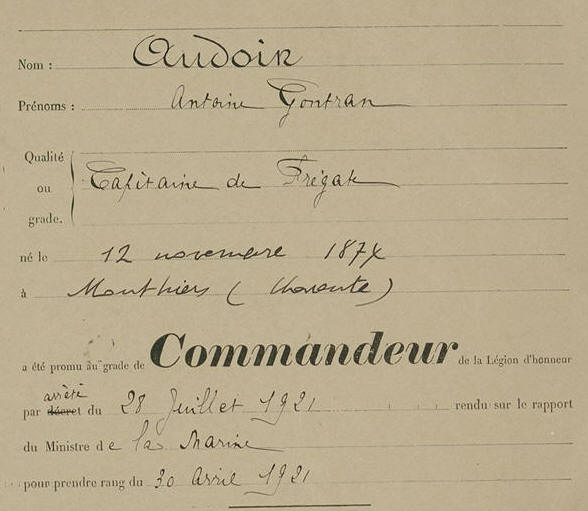 Nom : Audoin
Prénoms : Antoine Gontran
Qualité
ou
grade.
Capitaine de Frégate
né le 12 novembre 1874
à Mouthiers (Charente)
a été promu au grade de Commandeur de la Légion d'honneur
arrêté
par décret du 28 Juillet 1921 rendu sur le rapport
du Ministre de la Marine
pour prendre rang du 30 Avril 1921